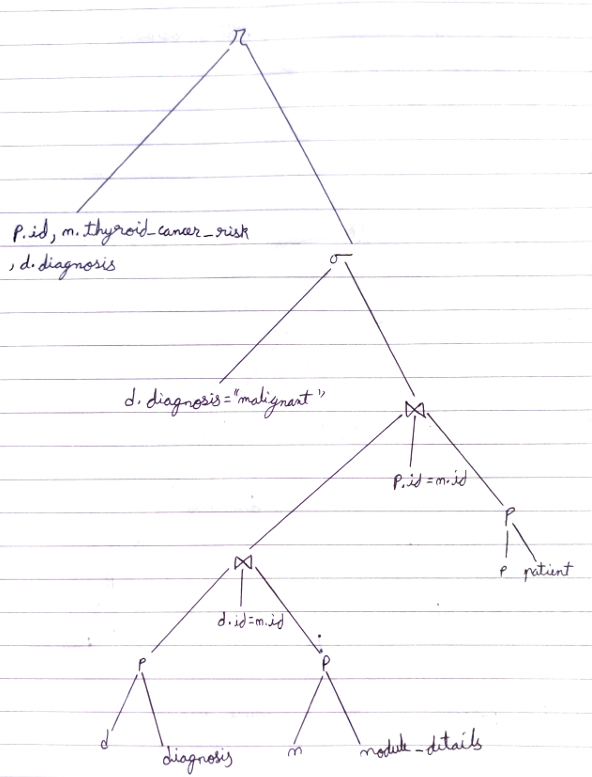 π
p.id, n.thyroid_cancer_risk
, d.diagnosis
σ
d.diagnosis="malignant"
⋈
p.id=n.id
ρ
p patient
⋈
d.id=n.id
ρ ρ
d diagnosis n nodule_details